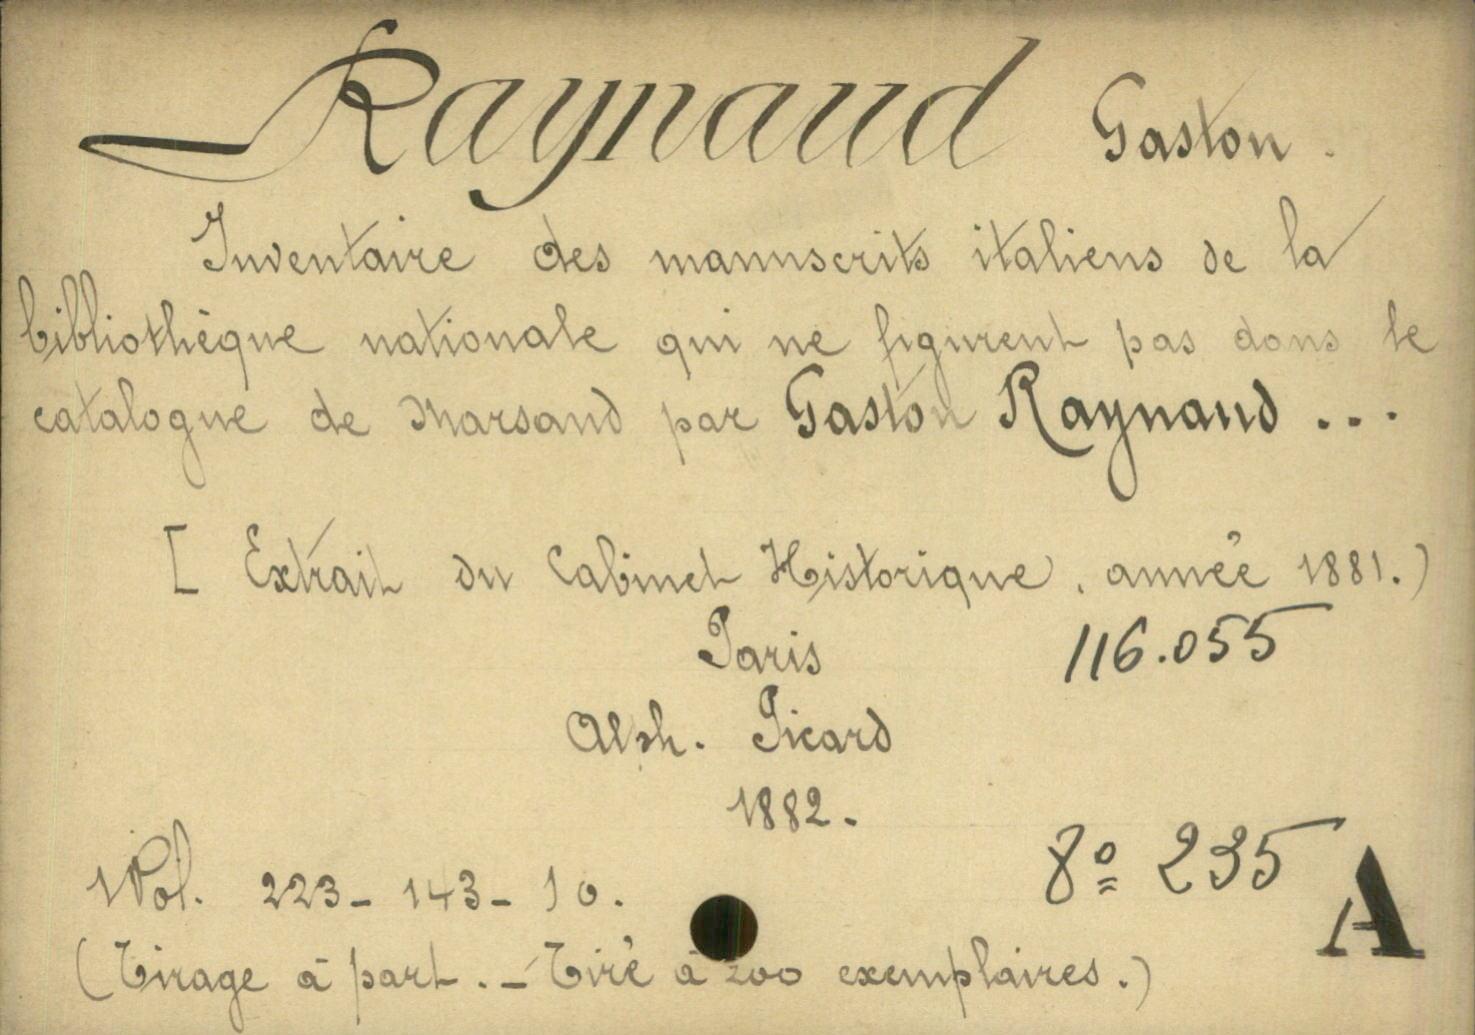 Raynaud Gaston.
Inventaire des manuscrits italiens de la
bibliothèque nationale qui ne figurent pas dans le
catalogue de Marsand par Gaston Raynaud ...
[ Extrait du Cabinet Historique, année 1881.)
Paris
116.055
Alph. Picard
1882.
8º 235 A
1 Vol. 223 - 143 - 10.
(Tirage à part. - Tiré à 200 exemplaires.)